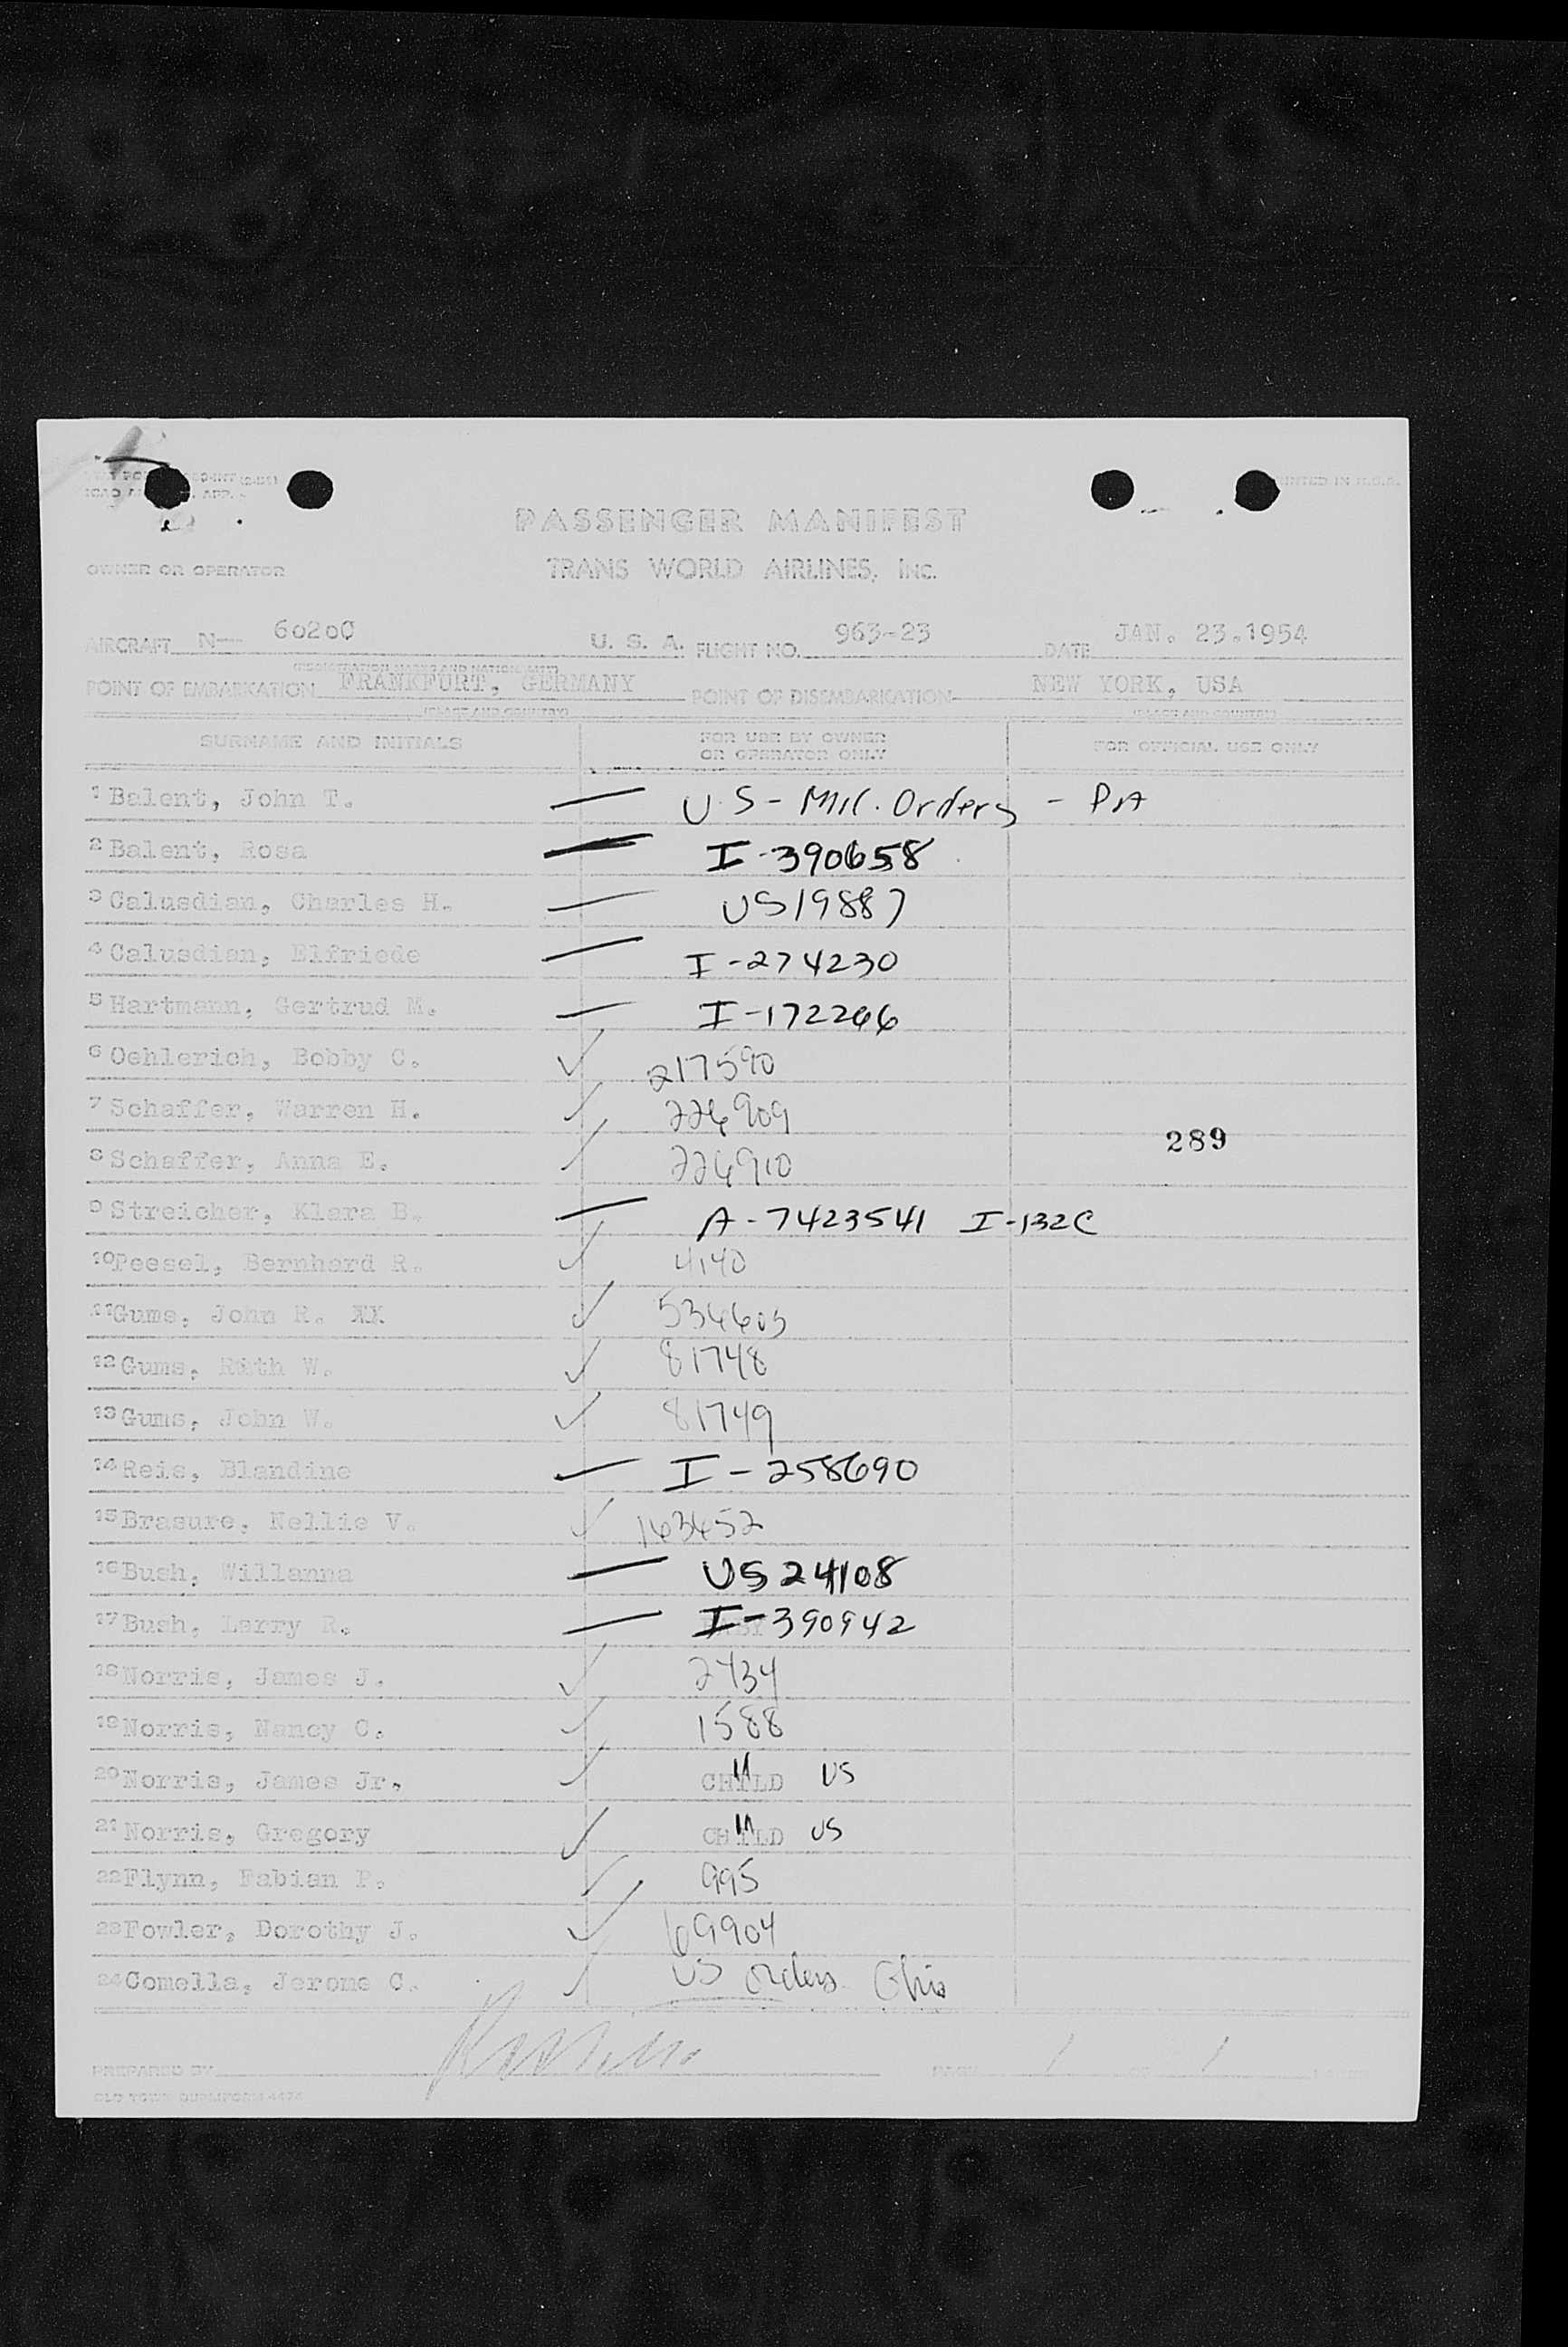 PRINTED IN U.S.A.
PASSENGER MANIFEST
OWNER OR OPERATOR TRANS WORLD AIRLINES, INC.
AIRCRAFT N-- 6020C U. S. A. FLIGHT NO. 963-23 DATE JAN. 23.1954
(REGISTRATION MARKS AND NATIONALITY)
POINT OF EMBARKATION FRANKFURT, GERMANY POINT OF DISEMBARKATION NEW YORK, USA
(PLACE AND COUNTRY) (PLACE AND COUNTRY)
SURNAME AND INITIALS FOR USE BY OWNER OR OPERATOR ONLY FOR OFFICIAL USE ONLY
1 Balent, John T. — U.S - Mil. Orders - PA
2 Balent, Rosa — I-390658
3 Calusdian, Charles H. — US19887
4 Calusdian, Elfriede — I-274230
5 Hartmann, Gertrud M. — I-172266
6 Oehlerich, Bobby C. ✓ 217590
7 Schaffer, Warren H. ✓ 226909
289
8 Schaffer, Anna E. ✓ 226910
9 Streicher, Klara B. — A-7423541 I-132C
10 Peesel, Bernhard R. ✓ 4140
11 Gums, John R. XX ✓ 536603
12 Gums, Ruth W. ✓ 81748
13 Gums, John W. ✓ 81749
14 Reis, Blandine — I-258690
15 Brasure, Nellie V. ✓ 163652
16 Bush, Willanna — US24108
17 Bush, Larry R. — I-390942
18 Norris, James J. ✓ 2434
19 Norris, Nancy C. ✓ 1588
20 Norris, James Jr. ✓ CHILD " US
21 Norris, Gregory ✓ CHILD " US
22 Flynn, Fabian P. ✓ 995
23 Fowler, Dorothy J. ✓ 69904
24 Comella, Jerome C. ✓ US orders Ohio
PREPARED BY PAGE 1 OF 1